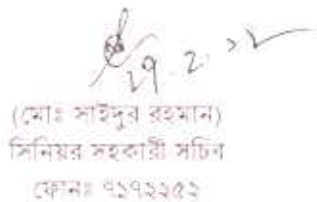 ২৭.২.১২
(মোঃ সাইদুর রহমান)
সিনিয়র সহকারী সচিব
ফোনঃ ৭১৭২২৫২